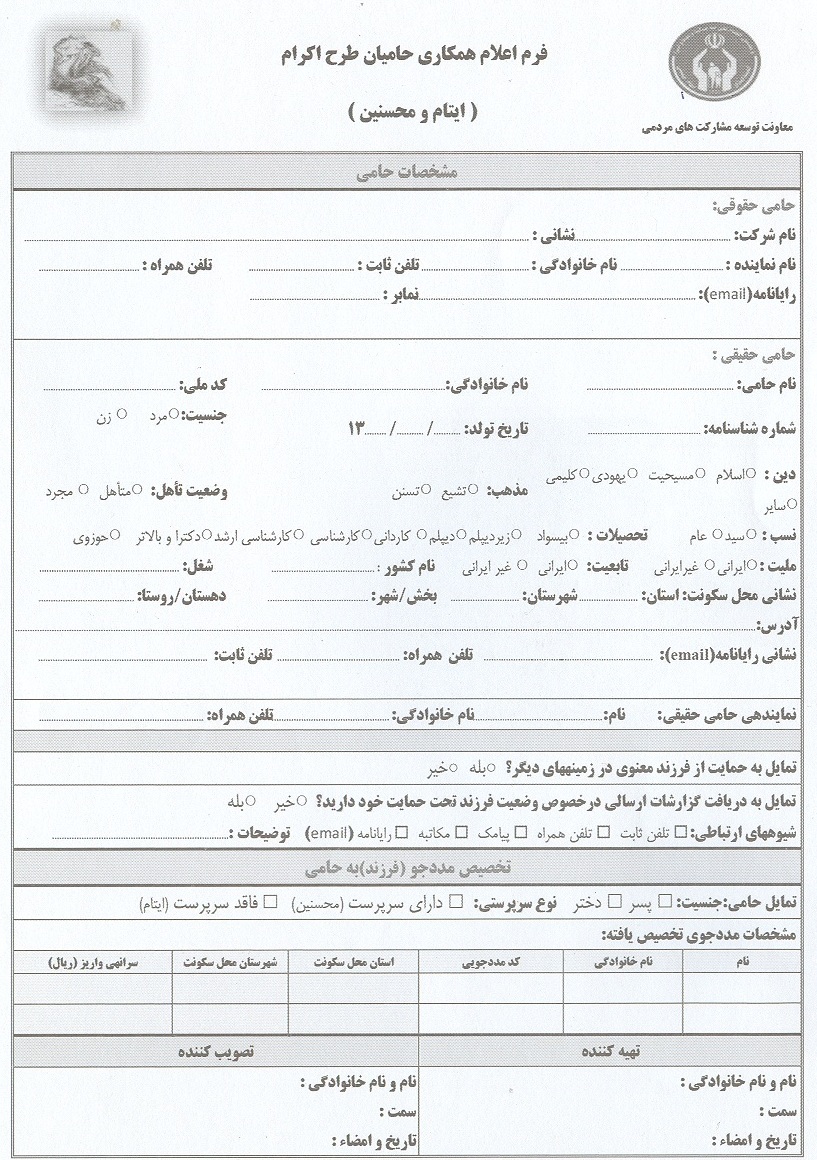 فرم اعلام همکاری حامیان طرح اکرام
( ایتام و محسنین )
معاونت توسعه مشارکت های مردمی
مشخصات حامی
حامی حقوقی:
نام شرکت: نشانی :
نام نماینده : نام خانوادگی : تلفن ثابت : تلفن همراه :
رایانامه(email): نمابر :
حامی حقیقی :
نام حامی: نام خانوادگی: کد ملی:
شماره شناسنامه: تاریخ تولد: ....../ ......./ ......13 جنسیت:○مرد ○ زن
دین : ○اسلام ○مسیحیت ○یهودی○کلیمی ○سایر مذهب: ○تشیع ○تسنن وضعیت تأهل: ○متأهل ○ مجرد
نسب : ○سید○ عام تحصیلات : ○بیسواد ○زیردیپلم○دیپلم○ کاردانی○کارشناسی ○کارشناسی ارشد○دکترا و بالاتر ○حوزوی
ملیت :○ایرانی○ غیرایرانی تابعیت: ○ایرانی ○ غیر ایرانی نام کشور : شغل:
نشانی محل سکونت: استان: شهرستان: بخش/شهر: دهستان/روستا:
آدرس:
نشانی رایانامه(email): تلفن همراه: تلفن ثابت:
نمایندهی حامی حقیقی: نام: نام خانوادگی: تلفن همراه:
تمایل به حمایت از فرزند معنوی در زمینههای دیگر؟ ○بله ○خیر
تمایل به دریافت گزارشات ارسالی درخصوص وضعیت فرزند تحت حمایت خود دارید؟ ○خیر ○بله
شیوههای ارتباطی:□ تلفن ثابت □ تلفن همراه □ پیامک □ مکاتبه □ رایانامه (email) توضیحات :
تخصیص مددجو (فرزند)به حامی
تمایل حامی:جنسیت:□ پسر □ دختر نوع سرپرستی: □ دارای سرپرست (محسنین) □ فاقد سرپرست (ایتام)
مشخصات مددجوی تخصیص یافته:
نام نام خانوادگی کد مددجویی استان محل سکونت شهرستان محل سکونت سرانهی واریز (ریال)
تهیه کننده تصویب کننده
نام و نام خانوادگی : نام و نام خانوادگی :
سمت : سمت :
تاریخ و امضاء : تاریخ و امضاء :